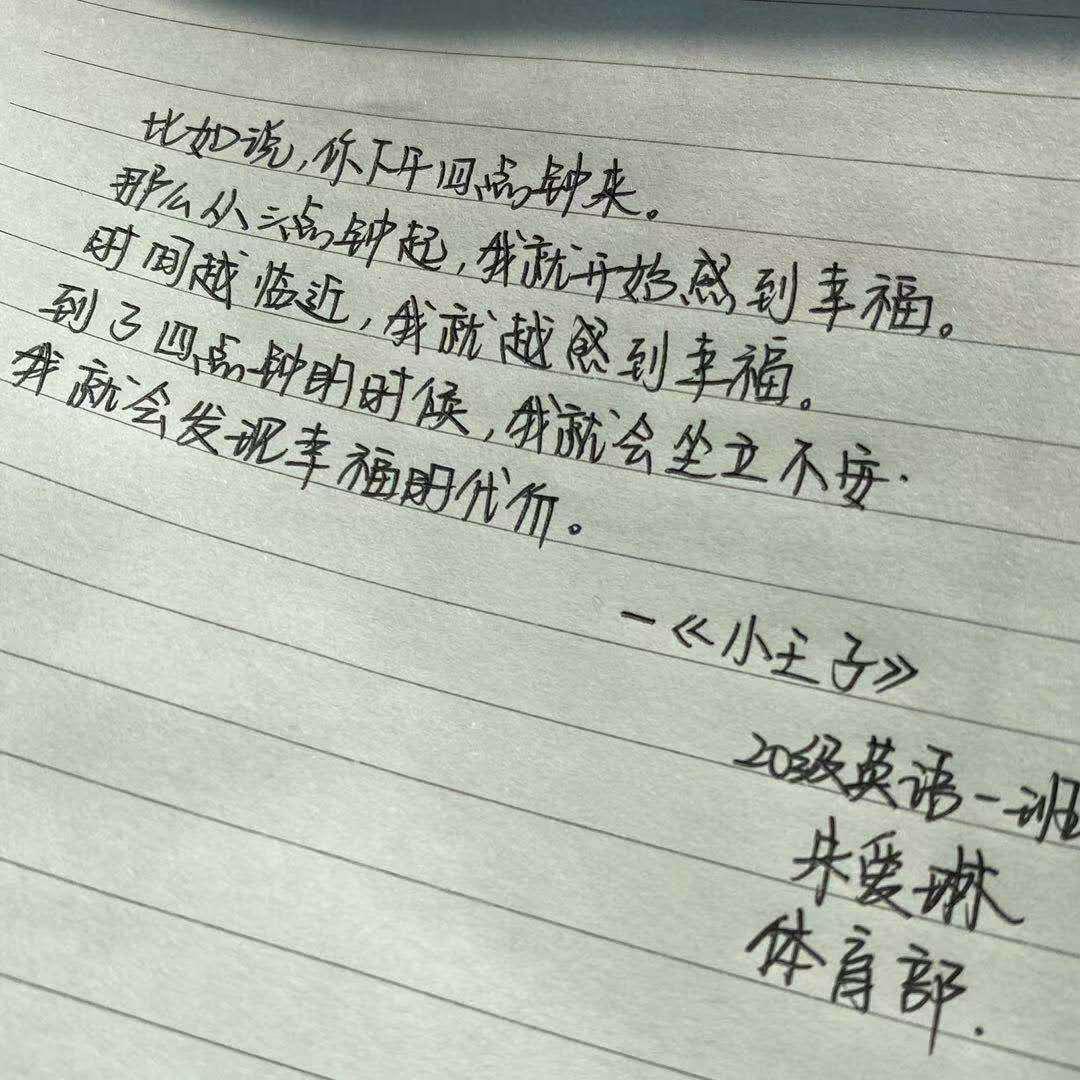 比如说,你下午四点钟来。
那么从三点钟起,我就开始感到幸福。
时间越临近,我就越感到幸福。
到了四点钟的时候,我就会坐立不安.
我就会发现幸福的代价。
—《小王子》
20级英语一班
朱爱琳
体育部.